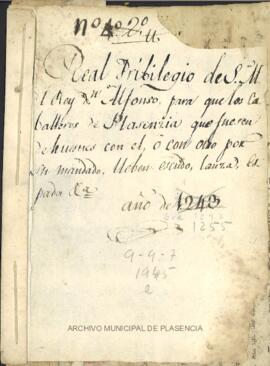 nº 4º 2º
Real Pribilegio de S. M.
el Rey Dn. Alfonso, para que los Ca
balleros de Plasenzia que fueren
de huestes con el, ó con otro por
su mandado, lleben escudo, lanza, es
pada &a
año de 1248
1255
9-9-7
1945
2
ARCHIVO MUNICIPAL DE PLASENCIA